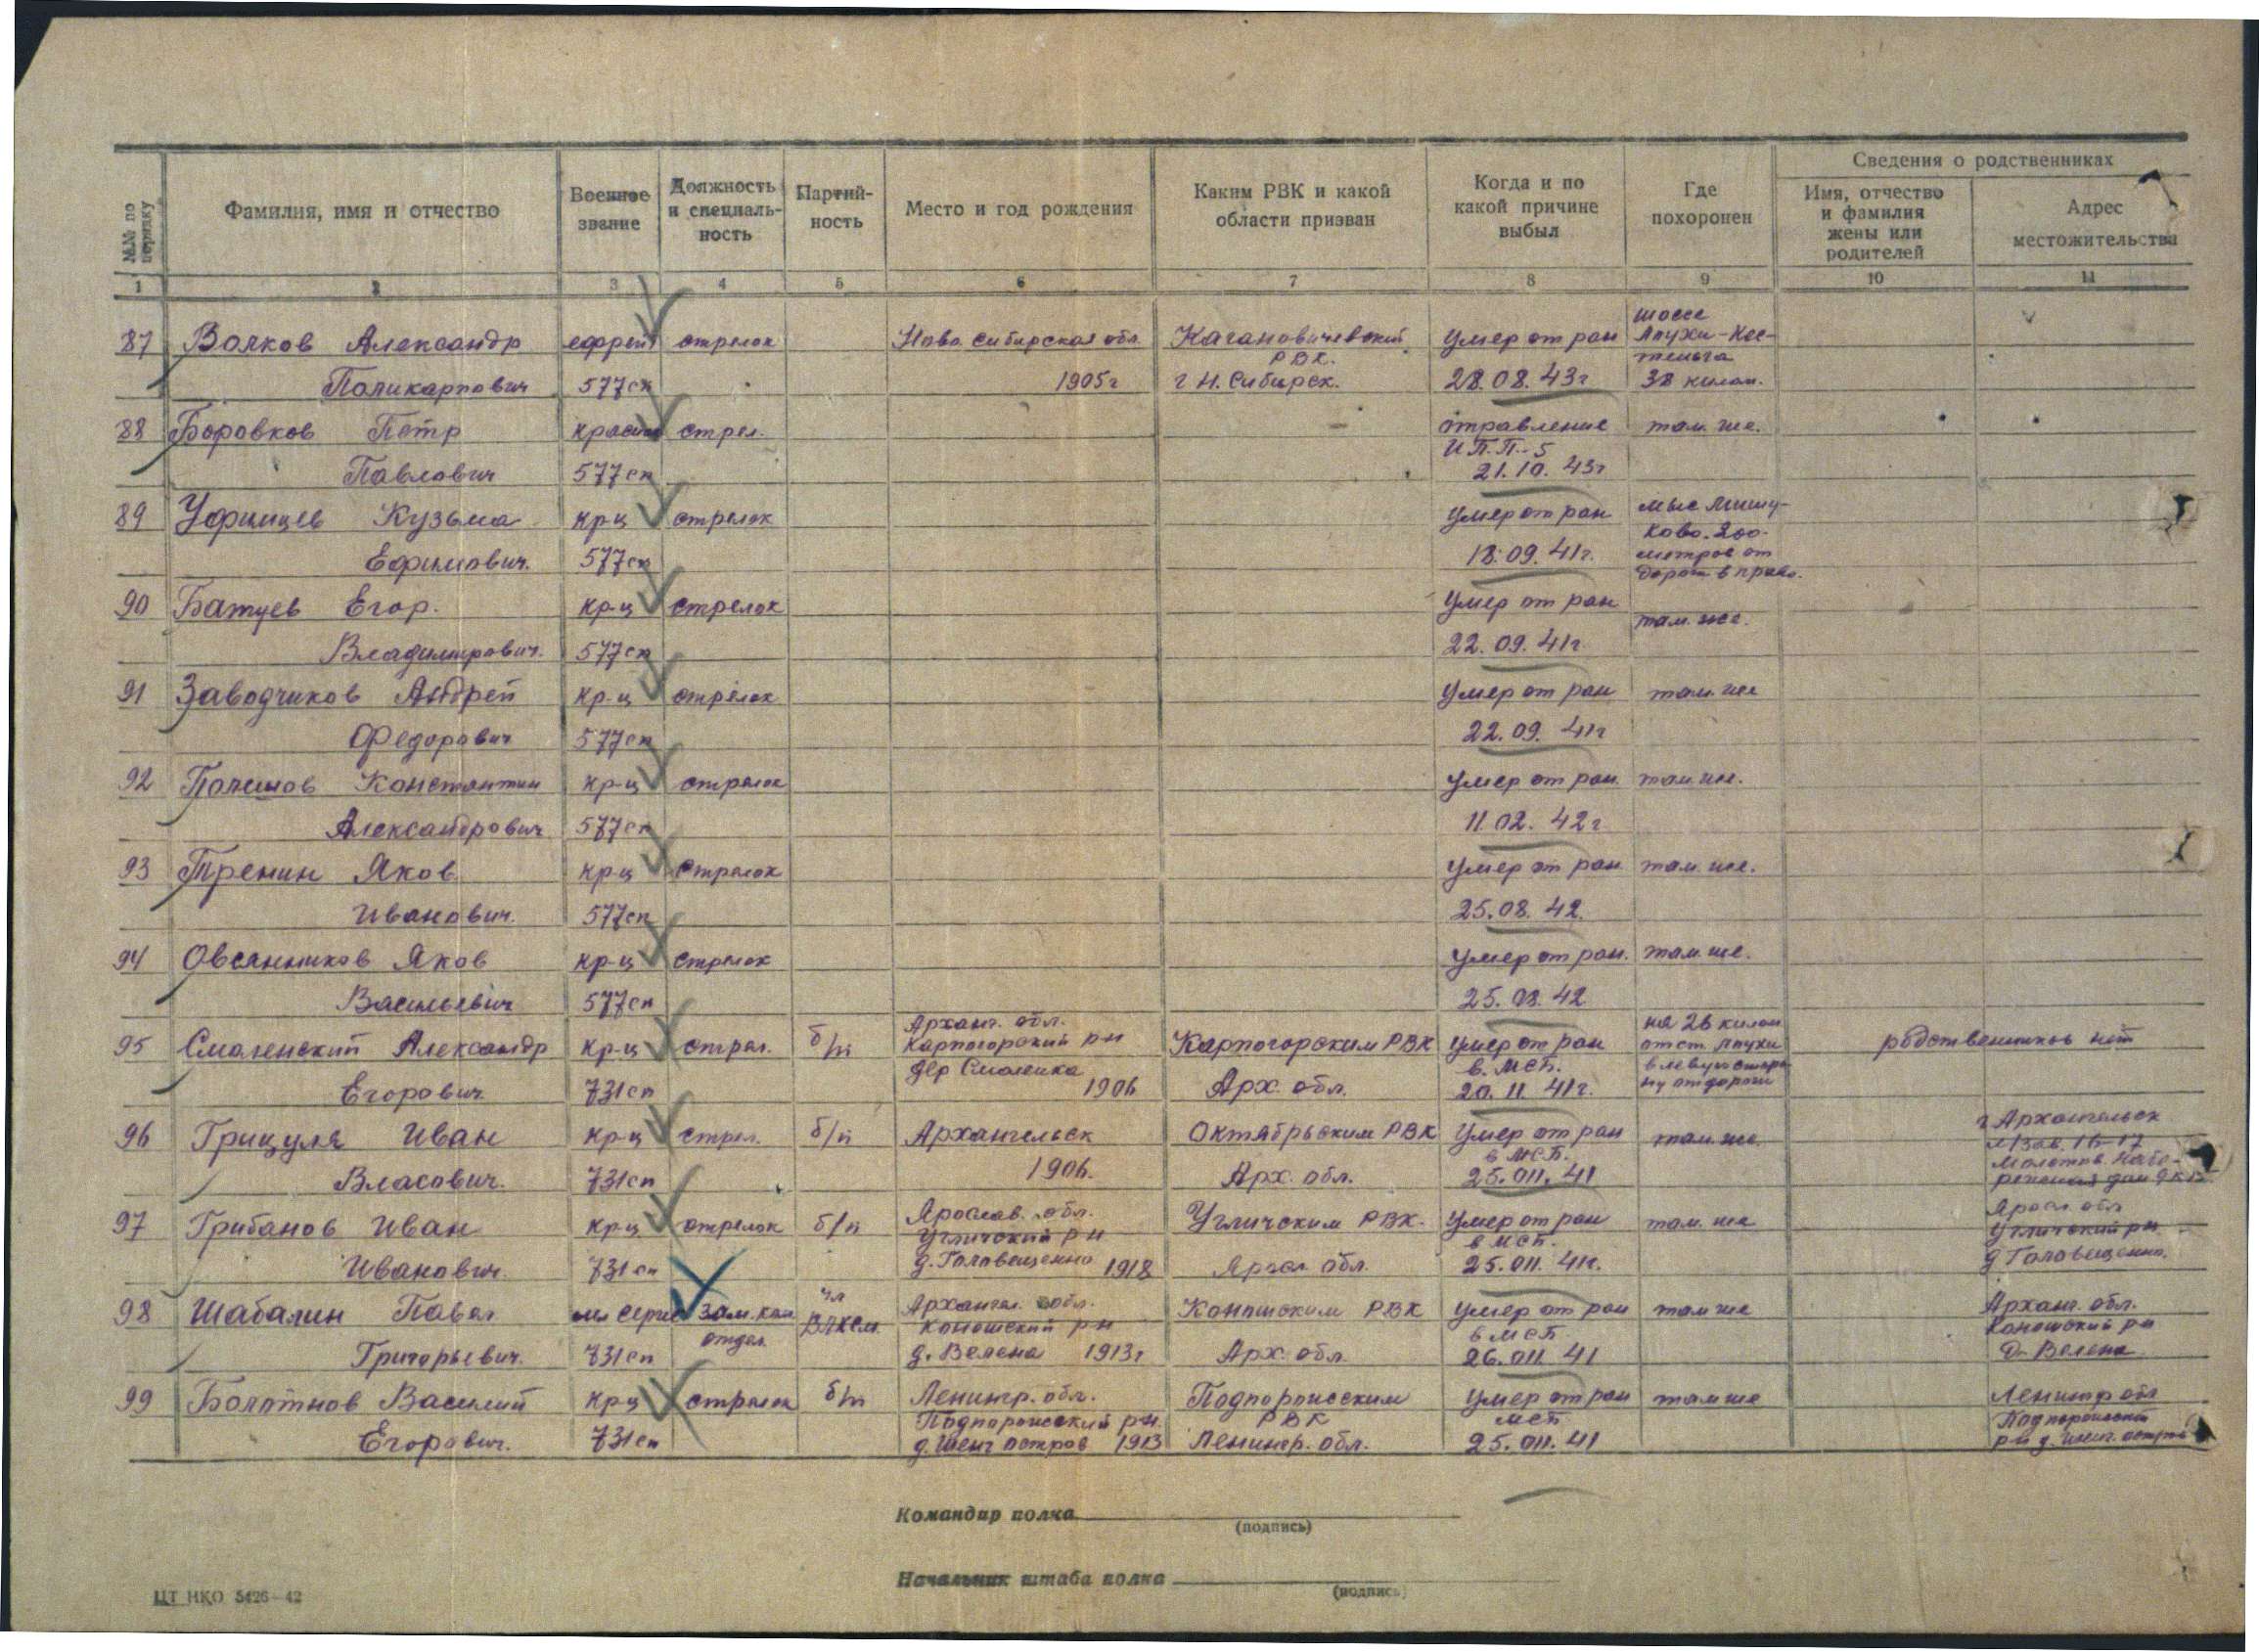 №№ по порядку
Фамилия, имя и отчество
Военное звание
Должность и специаль-ность
Партий-ность
Место и год рождения
Каким РВК и какой области призван
Когда и по какой причине выбыл
Где похоронен
Сведения о родственниках
Имя, отчество и фамилия жены или родителей
Адрес местожительства
1 2 3 4 5 6 7 8 9 10 11
87 Волков Александр ефрейт стрелок Ново Сибирская обл Кагановичевский РВК. умер от ран шоссе Лоухи-Кес-
Поликарпович 577сп 1905г г Н. Сибирск. 28.08.43г теньга 38 килом.
88 Боровков Петр красн стрел. отравление там же.
Павлович 577сп ИПП-5 21.10.43г
89 Уфимцев Кузьма кр-ц стрелок умер от ран мыс Мишу-
Ефимович. 577сп 18.09.41г. ково. 200. метров от дороги в право.
90 Батуев Егор. кр-ц стрелок умер от ран там же.
Владимирович. 577сп 22.09.41г
91 Заводчиков Андрей кр-ц стрелок умер от ран там же
Федорович 577сп 22.09.41г
92 Константин кр-ц стрелок умер от ран. там же.
Александрович 577сп 11.02.42г
93 Тренин Яков кр-ц стрелок умер от ран там же.
Иванович. 577сп 25.08.42.
94 Овсянников Яков кр-ц стрелок умер от ран. там же.
Васильевич 577сп 25.08.42
95 Смоленский Александр кр-ц стрел. б/п Арханг. обл. Карпогорский рн Карпогорским РВК умер от ран на 26 килом от ст Лоухи родственников нет
Егорович 731сп дер Смоленка 1906 Арх. обл. в. МСБ. 20.11.41г. в левую сторо-ну от дороги
96 Грицуля Иван кр-ц стрел. б/п Архангельск Октябрьским РВК умер от ран там же. г Архангельск
Власович. 731сп 1906. Арх. обл. в МСБ. 25.011.41 л/зав. 16-17 Молотов. набе-
97 Грибанов Иван кр-ц стрелок б/п Ярослав. обл. Угличский рн Угличским РВК. умер от ран там же Яросл обл Угличский рн
Иванович. 731сп д. Головещенно 1918 Яросл обл. в МСБ. 25.011.41г. д Головещенно.
98 Шабалин Павел мл серж зам. ком. отдел. чл ВЛКСМ Арханг. обл. Коношский рн Коношским РВК умер от ран там же Арханг. обл. Коношский рн
Григорьевич. 731сп д. Велена 1913г Арх. обл. в МСБ 26.011.41 д. Велена
99 Болотнов Василий кр-ц стрелок б/п Ленингр. обл. Подпорожским умер от ран там же Ленингр обл
Егорович. 731сп Подпорожский рн. д. Шенг остров 1913 РВК Ленингр. обл. МСБ 25.011.41 Подпорожский рн д. Шенг. остров
Командир полка
(подпись)
Начальник штаба полка
(подпись)
ЦТ НКО 5426-42